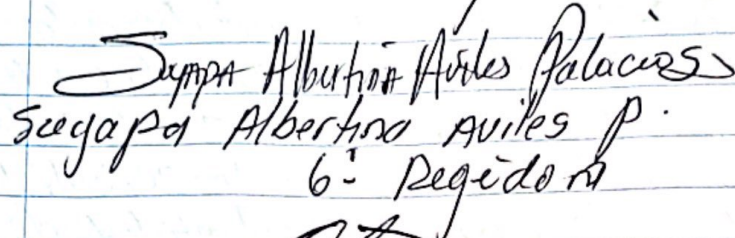 Suyapa Albertina Aviles Palacios
Suyapa Albertina Aviles P.
6ª Regidora